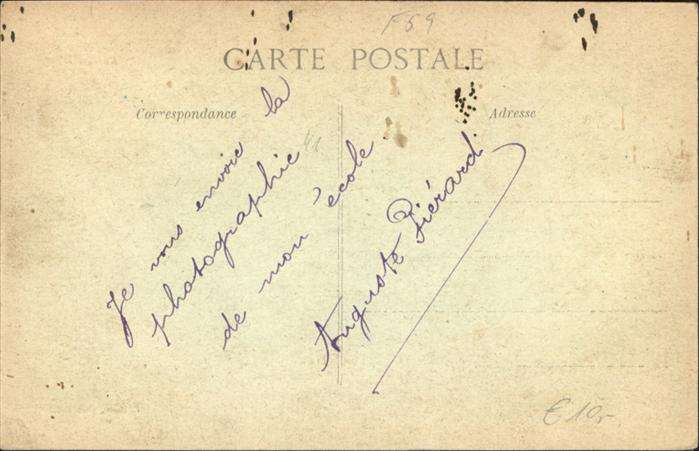 F59
CARTE POSTALE
Correspondance
Adresse
Je vous envoie la
photographie
de mon école
Auguste Piérard.
€ 10,-